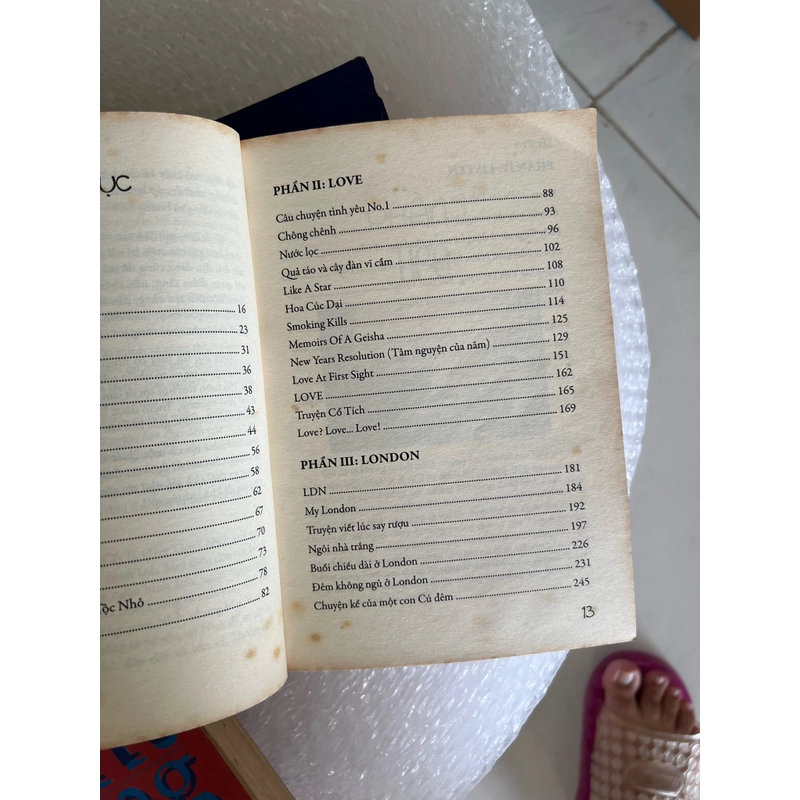 ỤC
16
23
31
36
38
43
44
56
58
62
67
70
73
ộc Nhỏ 78
82
PHẦN II: LOVE
Câu chuyện tình yêu No.1 88
Chông chênh 93
Nước lọc 96
Quả táo và cây đàn vĩ cầm 102
Like A Star 108
Hoa Cúc Dại 110
Smoking Kills 114
Memoirs Of A Geisha 125
New Years Resolution (Tâm nguyện của năm) 129
Love At First Sight 151
LOVE 162
Truyện Cổ Tích 165
Love? Love... Love! 169
PHẦN III: LONDON
LDN 181
My London 184
Truyện viết lúc say rượu 192
Ngôi nhà trắng 197
Buổi chiều dài ở London 226
Đêm không ngủ ở London 231
Chuyện kể của một con Cú đêm 245
13